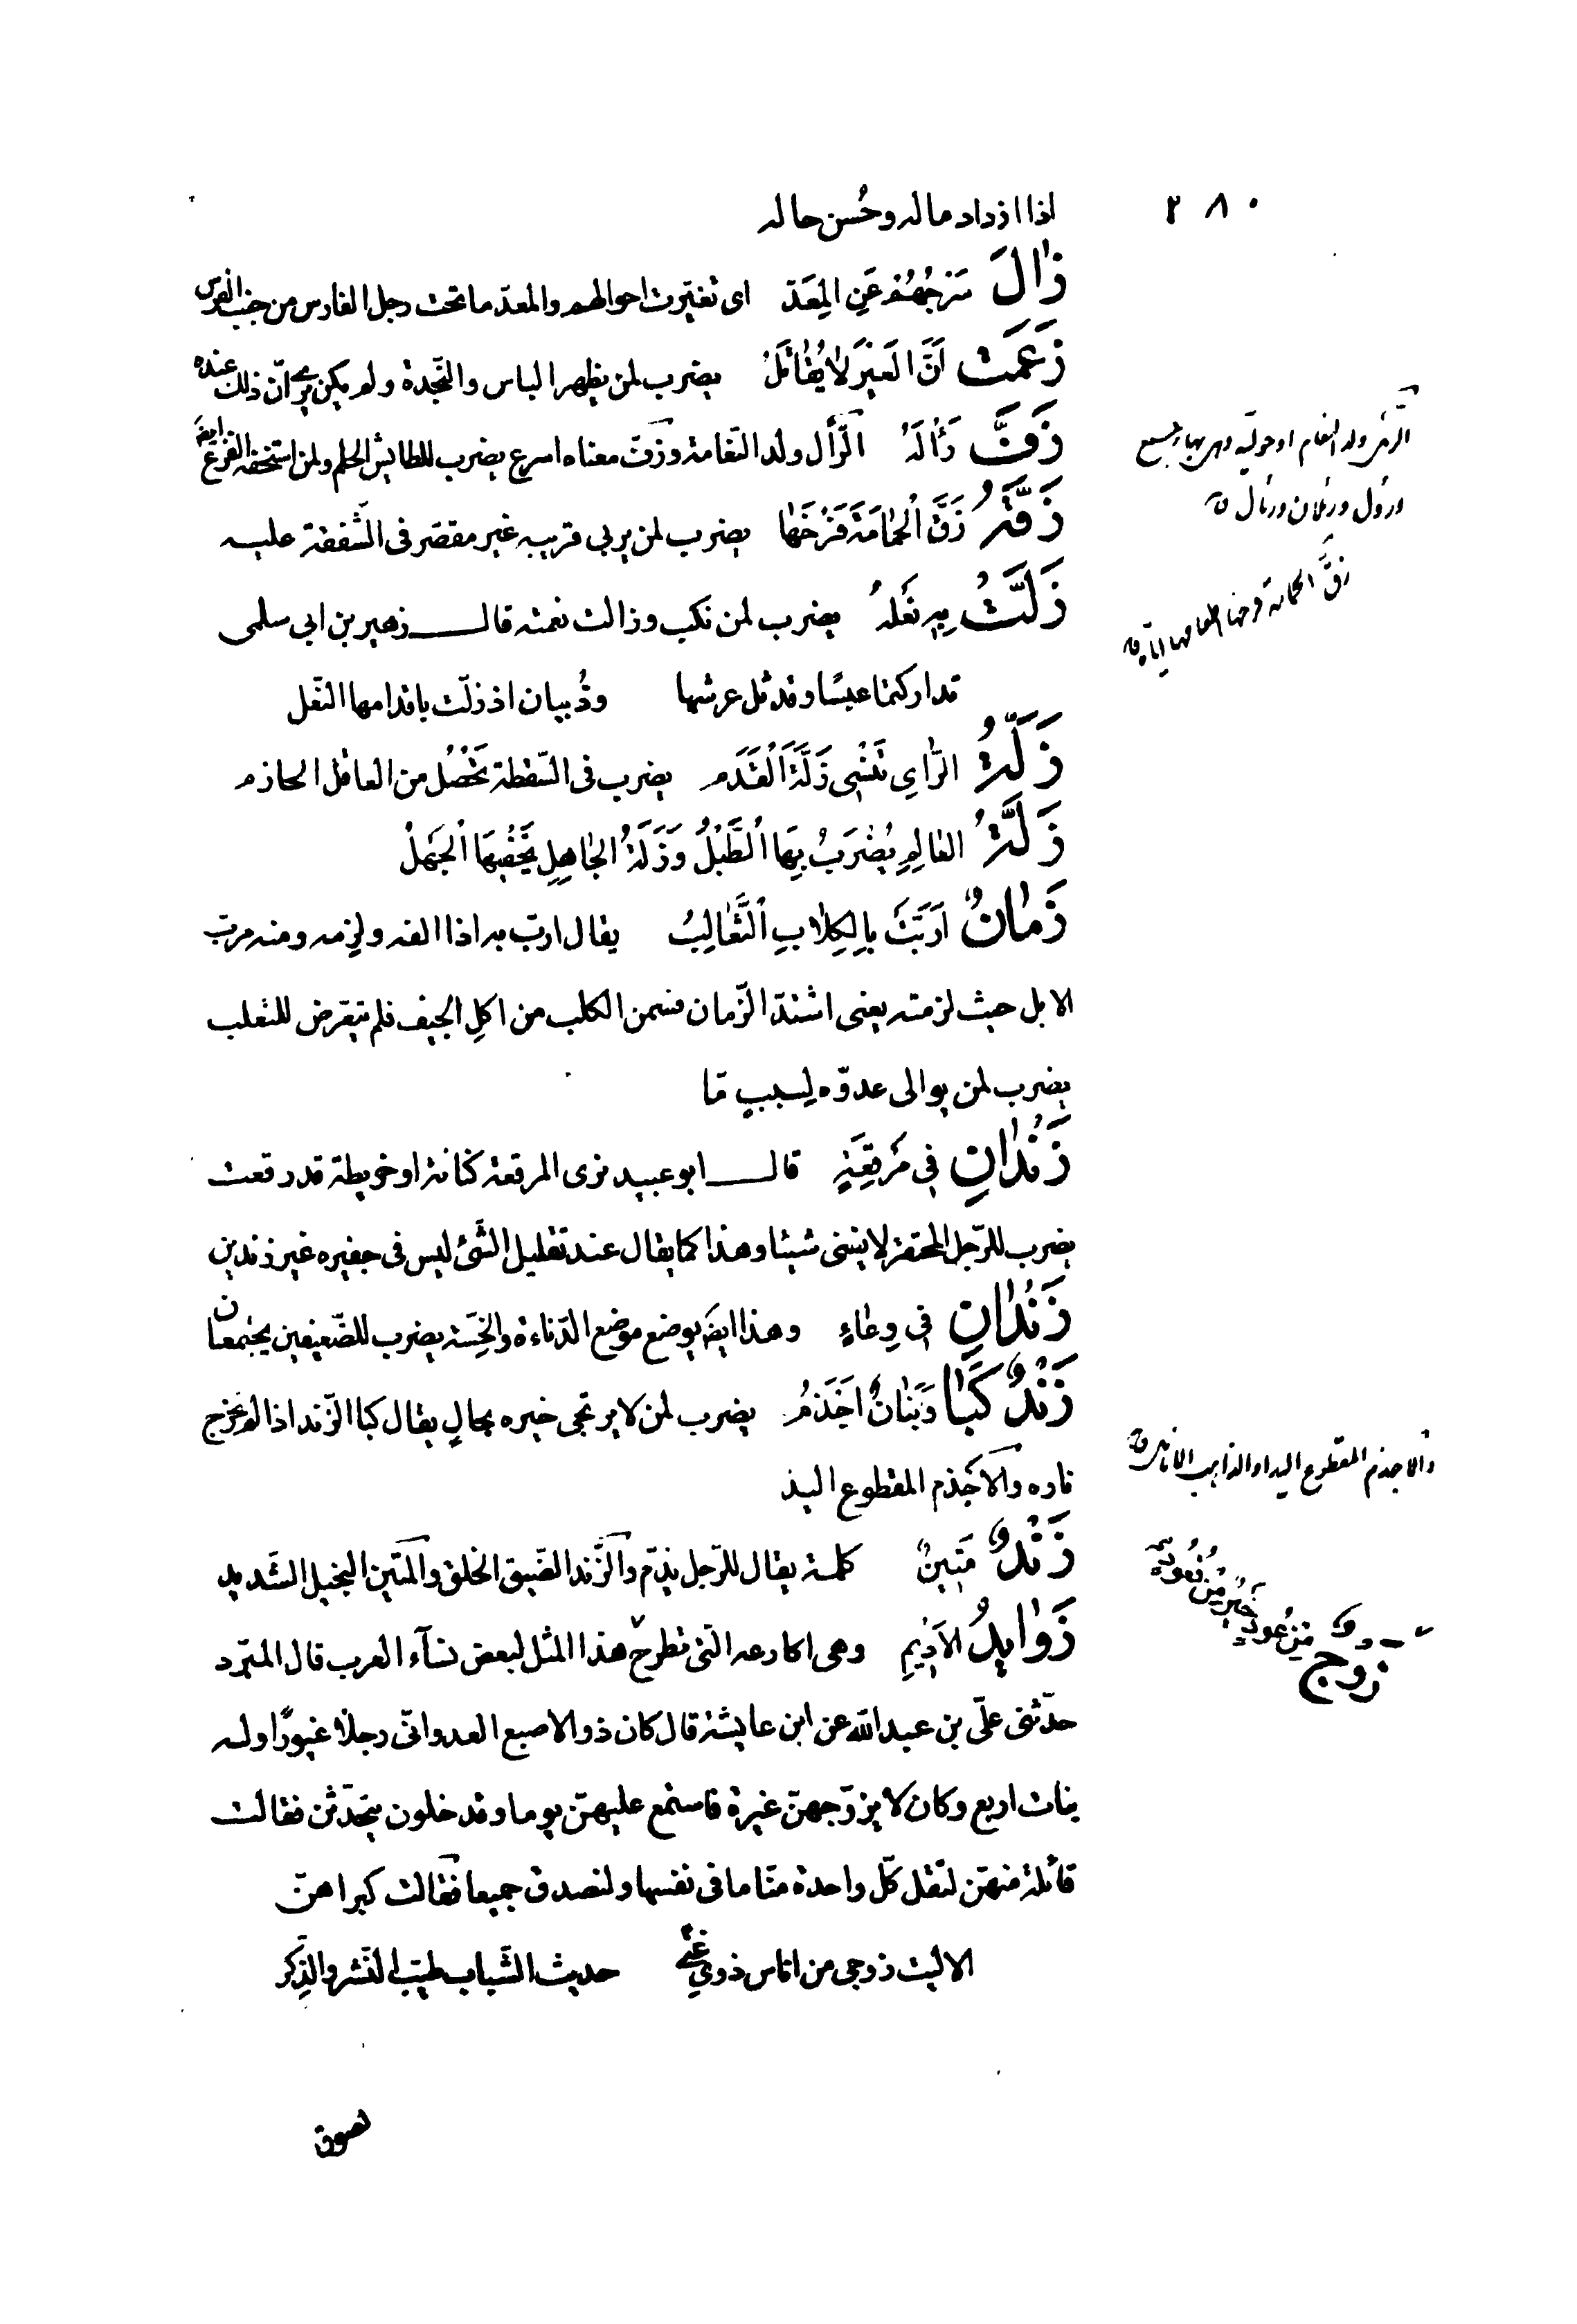 ٢٨٠
اذا ازداد ماله وحُسن حاله
زٰالَ سَرْجُهُم عَنِ المِعَدّ اى تغيّرت احوالهم والمعدّ ماتحت رجل الفارس من جنب الفرس
زَعَمَت اَنَّ العَيْرَ لاٰيُقٰاتِلُ يضرب لمن يظهر الباس والنّجدة ولم يكن يرى انّ ذلك عنده
زَفَّ رَألُهُ الرّأل ولد النّعامة وزفّ معناه اسرع يضرب للطايش الحلم ولمن استخفه الفزع ايضً
زَقَّهُ زَقَّ الْحَمٰامَةِ فَرْخَهٰا يضرب لمن يربى قريبه غير مقصّر فى الشّفقة عليه
زَلَّتْ بِهِ نَعْلُهُ يضرب لمن نكب وزالت نعمته قال زهير بن ابي سلمى
تداركتما عبسًا وقد ثل عرشها وذُبيان اذ زلّت باقدامها النّعل
زَلَّةُ الرّٰايِ تُنْسٰى زَلَّةَ الْقَدَم يضرب فى السّقطة تَحْصُل من العاقل الحازم
زَلَّةُ العٰالِمِ يُضْرَبُ بِهَا الْطَّبْلُ وَزَلَّةُ الجٰاهِلِ يُخْفِيهَا الْجَهْلُ
زَمٰانٌ اَرَبَّتْ بِالكِلاٰبِ الْثَّعٰالِبُ يقال ارب به اذا الفه ولزمه ومنه مرب
الابل حيث لزمته يعنى اشتدّ الزّمان فسمن الكلب من اكلِ الجيف فلم يتعرض للثعلب
يضرب لمن يوالى عدوّه لِسببٍ مّا
زَنْدٰانِ فِى مُرَقَّعَةٍ قال ابو عبيد نرى المرقعة كنانة او خريطة قد رقعت
يضرب للرّجل المحتقر لايننى شيئا وهذا كما يقال عند تقليل الشّئ ليس فى جفيره غير زندين
زَنْدٰانِ فِى وِعٰاءٍ وهذا ايضً يوضع موضع الدّناءة والخِسّة يضرب للضّعيفين يجتمعان
زَنْدٌ كَبٰا وَبَنٰانٌ اَجْذَمُ يضرب لمن لايرتجى خيره بحالٍ يقال كبا الزّند اذا لم يخرج
ناره والاجْذم المقطوع اليد
زَنْدٌ مَتِينٌ كلمة يقال للرّجل يذمّ والزّند الضّيق الخلق والمتين البخيل الشّديد
زَوٰايِدُ الاَدِيمِ وهى اكارعه الّتى تطرح هذا المثل لبعض نسآء العرب قال المبرّد
حدّثنى علّى بن عبدالله عن ابن عايشة قال كان ذوالاصبع العدوانّى رجلاً غيورًا وله
بنات اربع وكان لايزوّجهنّ غيرة فاستمع عليهنّ يوما وقد خلون يتحدّثن فقالت
قائلة منهنّ لتقل كلّ واحدة منّا ما فى نفسها ولنصدق جميعا فقالت كبراهنّ
الاليت زوجى من اناس ذوي غنى حديث الشّباب طيب النّشر والذّكر
الرأل ولد النعام او حوليّه وهى بهاء جمع
ورؤل ورئلان ورئال
زقّ الحمامة فرخها اطعامها اياه
والاجذم المقطوع اليد او الذاهب الانامل
زوجٌ مِنْ عُودٍ خَيْرٌ مِنْ قُعُود